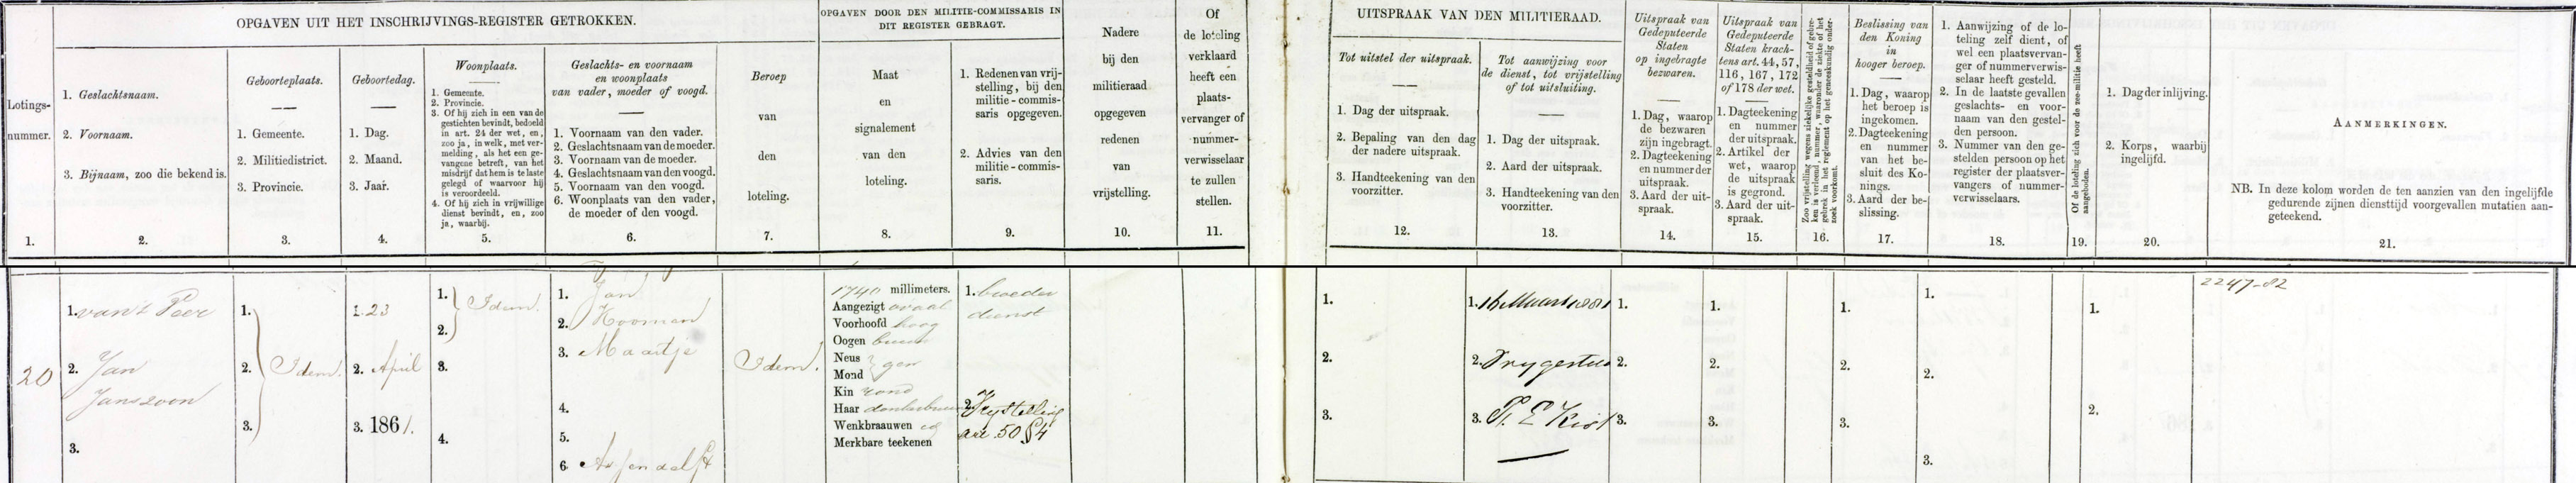 OPGAVEN UIT HET INSCHRIJVINGS-REGISTER GETROKKEN.
OPGAVEN DOOR DEN MILITIE-COMMISSARIS IN
DIT REGISTER GEBRAGT.
Lotings-
nummer.
1.
1. Geslachtsnaam.
2. Voornaam.
3. Bijnaam, zoo die bekend is.
2.
Geboorteplaats.
1. Gemeente.
2. Militiedistrict.
3. Provincie.
3.
Geboortedag.
1. Dag.
2. Maand.
3. Jaar.
4.
Woonplaats.
1. Gemeente.
2. Provincie.
3. Of hij zich in een van de
gestichten bevindt, bedoeld
in art. 24 der wet, en,
zoo ja, in welk, met ver-
melding, als het een ge-
vangene betreft, van het
misdrijf dat hem is te laste
gelegd of waarvoor hij
is veroordeeld.
4. Of hij zich in vrijwillige
dienst bevindt, en, zoo
ja, waarbij.
5.
Geslachts- en voornaam
en woonplaats
van vader, moeder of voogd.
1. Voornaam van den vader.
2. Geslachtsnaam van de moeder.
3. Voornaam van de moeder.
4. Geslachtsnaam van den voogd.
5. Voornaam van den voogd.
6. Woonplaats van den vader,
de moeder of den voogd.
6.
Beroep
van
den
loteling.
7.
Maat
en
signalement
van den
loteling.
8.
1. Redenen van vrij-
stelling, bij den
militie-commis-
saris opgegeven.
2. Advies van den
militie-commis-
saris.
9.
Nadere
bij den
militieraad
opgegeven
redenen
van
vrijstelling.
10.
Of
de loteling
verklaard
heeft een
plaats-
vervanger of
nummer-
verwisselaar
te zullen
stellen.
11.
UITSPRAAK VAN DEN MILITIERAAD.
Tot uitstel der uitspraak.
1. Dag der uitspraak.
2. Bepaling van den dag
der nadere uitspraak.
3. Handteekening van den
voorzitter.
12.
Tot aanwijzing voor
de dienst, tot vrijstelling
of tot uitsluiting.
1. Dag der uitspraak.
2. Aard der uitspraak.
3. Handteekening van den
voorzitter.
13.
Uitspraak van
Gedeputeerde
Staten
op ingebragte
bezwaren.
1. Dag, waarop
de bezwaren
zijn ingebragt.
2. Dagteekening
en nummer der
uitspraak.
3. Aard der uit-
spraak.
14.
Uitspraak van
Gedeputeerde
Staten krach-
tens art. 44, 57,
116, 167, 172
of 178 der wet.
1. Dagteekening
en nummer
der uitspraak.
2. Artikel der
wet, waarop
de uitspraak
is gegrond.
3. Aard der uit-
spraak.
15.
Zoo vrijstelling wegens ziekelijke gesteldheid of gebre-
ken is verleend, nummer, waaronder de ziekte of het
gebrek in het reglement op het geneeskundig onder-
zoek voorkomt.
16.
Beslissing van
den Koning
in
hooger beroep.
1. Dag, waarop
het beroep is
ingekomen.
2. Dagteekening
en nummer
van het be-
sluit des Ko-
nings.
3. Aard der be-
slissing.
17.
1. Aanwijzing of de lo-
teling zelf dient, of
wel een plaatsvervan-
ger of nummerverwis-
selaar heeft gesteld.
2. In de laatste gevallen
geslachts- en voor-
naam van den gestel-
den persoon.
3. Nummer van den ge-
stelden persoon op het
register der plaatsver-
vangers of nummer-
verwisselaars.
18.
Of de loteling zich voor de zee-militie heeft
aangeboden.
19.
1. Dag der inlijving.
2. Korps, waarbij
ingelijfd.
20.
AANMERKINGEN.
NB. In deze kolom worden de ten aanzien van den ingelijfde
gedurende zijnen diensttijd voorgevallen mutatien aan-
geteekend.
21.
20
1. van 't Peer
2. Jan
Janszoon
3.
1.
2. Idem.
3.
1. 23
2. April
3. 1861.
1. Idem.
2.
3.
4.
1. Jan
2. Kooman
3. Maartje
4.
5.
6. Assendelft
Idem.
1740 millimeters.
Aangezigt ovaal
Voorhoofd hoog
Oogen bruin
Neus
Mond gew
Kin rond
Haar donkerbruin
Wenkbraauwen id
Merkbare teekenen
1. broeder
dienst
2. Vrystelling
art. 50 § 4
1.
2.
3.
1. 16 Maart 1881
2. Vrygesteld
3. Kist
1.
2.
3.
1.
2.
3.
1.
2.
3.
1.
2.
3.
1.
2.
2247-82